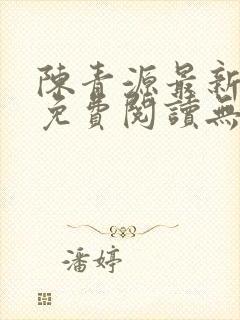 陳青源最新
免費閱讀無
潘婷